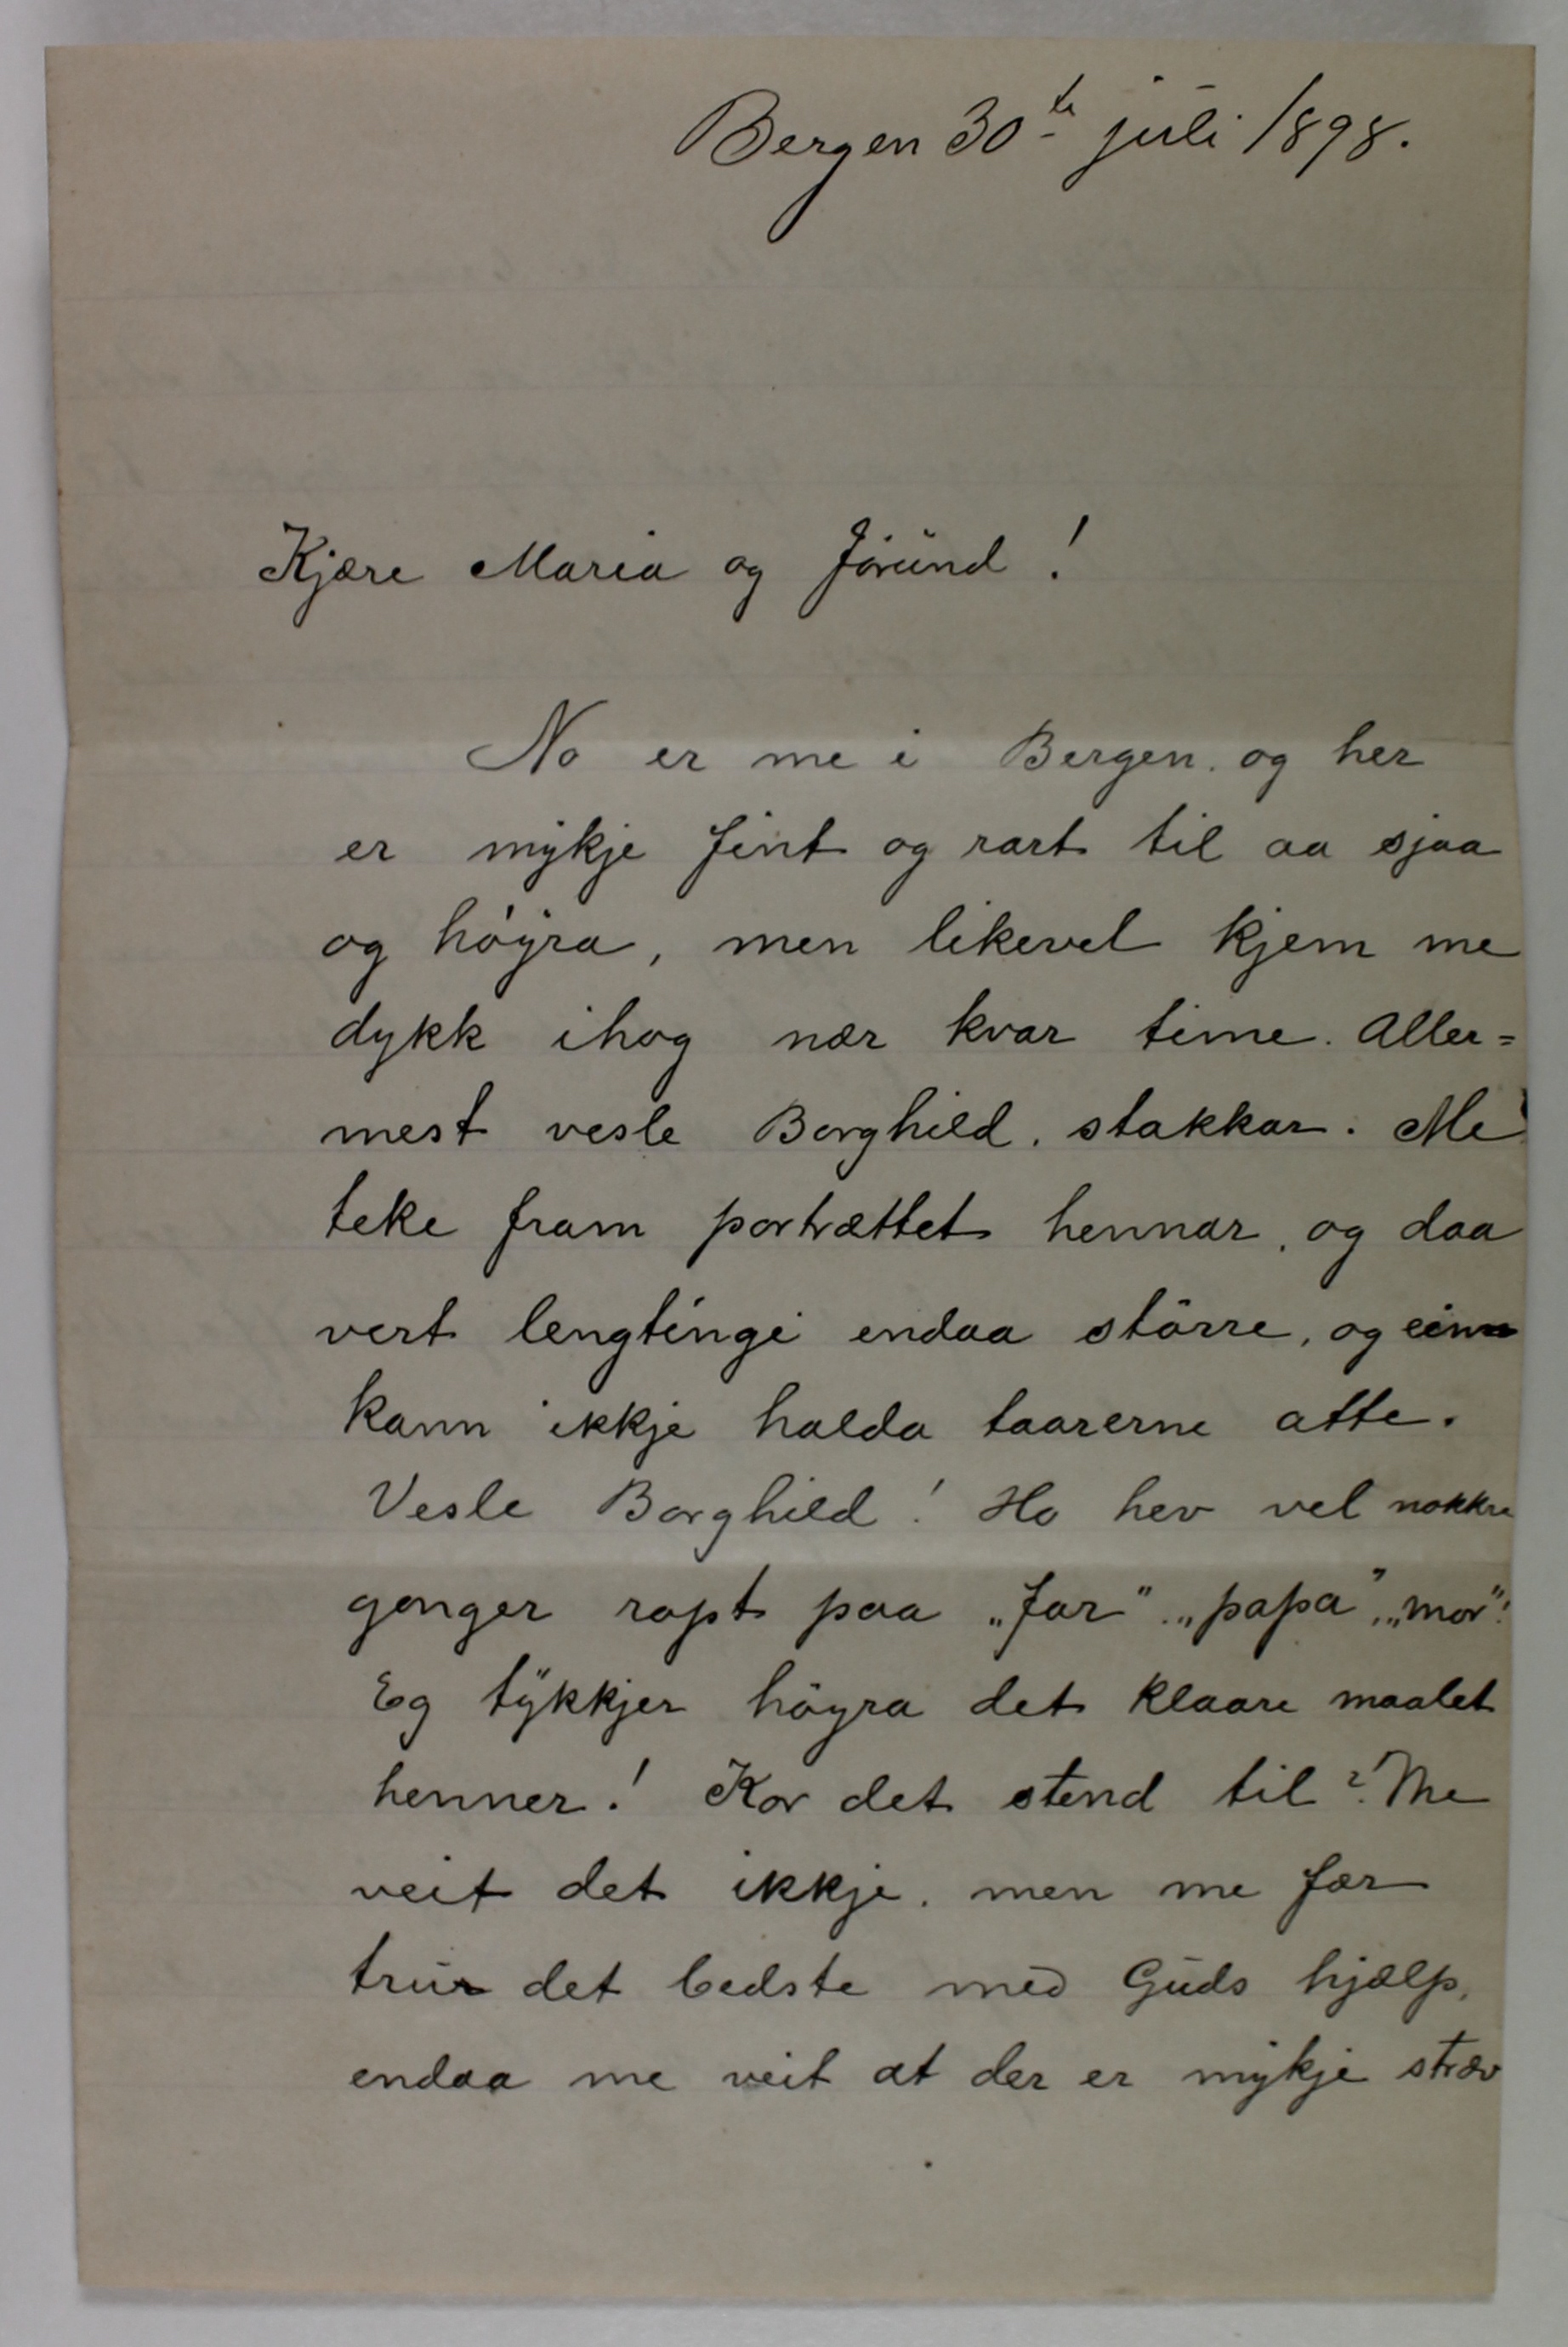 Bergen 30te juli 1898.
Kjære Maria og Jörund!
No er me i Bergen, og her
er mykje fint og rart til aa sjaa
og höyra, men likevel kjem me
dykk ihog nær kvar time. Aller=
mest vesle Borghild, stakkar. Me
teke fram portrættet hennar, og daa
vert lengtingi endaa större, og ein
kann ikkje halda taarerne atte.
Vesle Borghild! Ho hev vel nokkre
gonger ropt paa „far", „papa", „mor"!
Eg tykkjer höyra det klaare maalet
henner! Kor det stend til? Me
veit det ikkje, men me fær
trur det bedste med Guds hjælp,
endaa me veit at der er mykje stræv